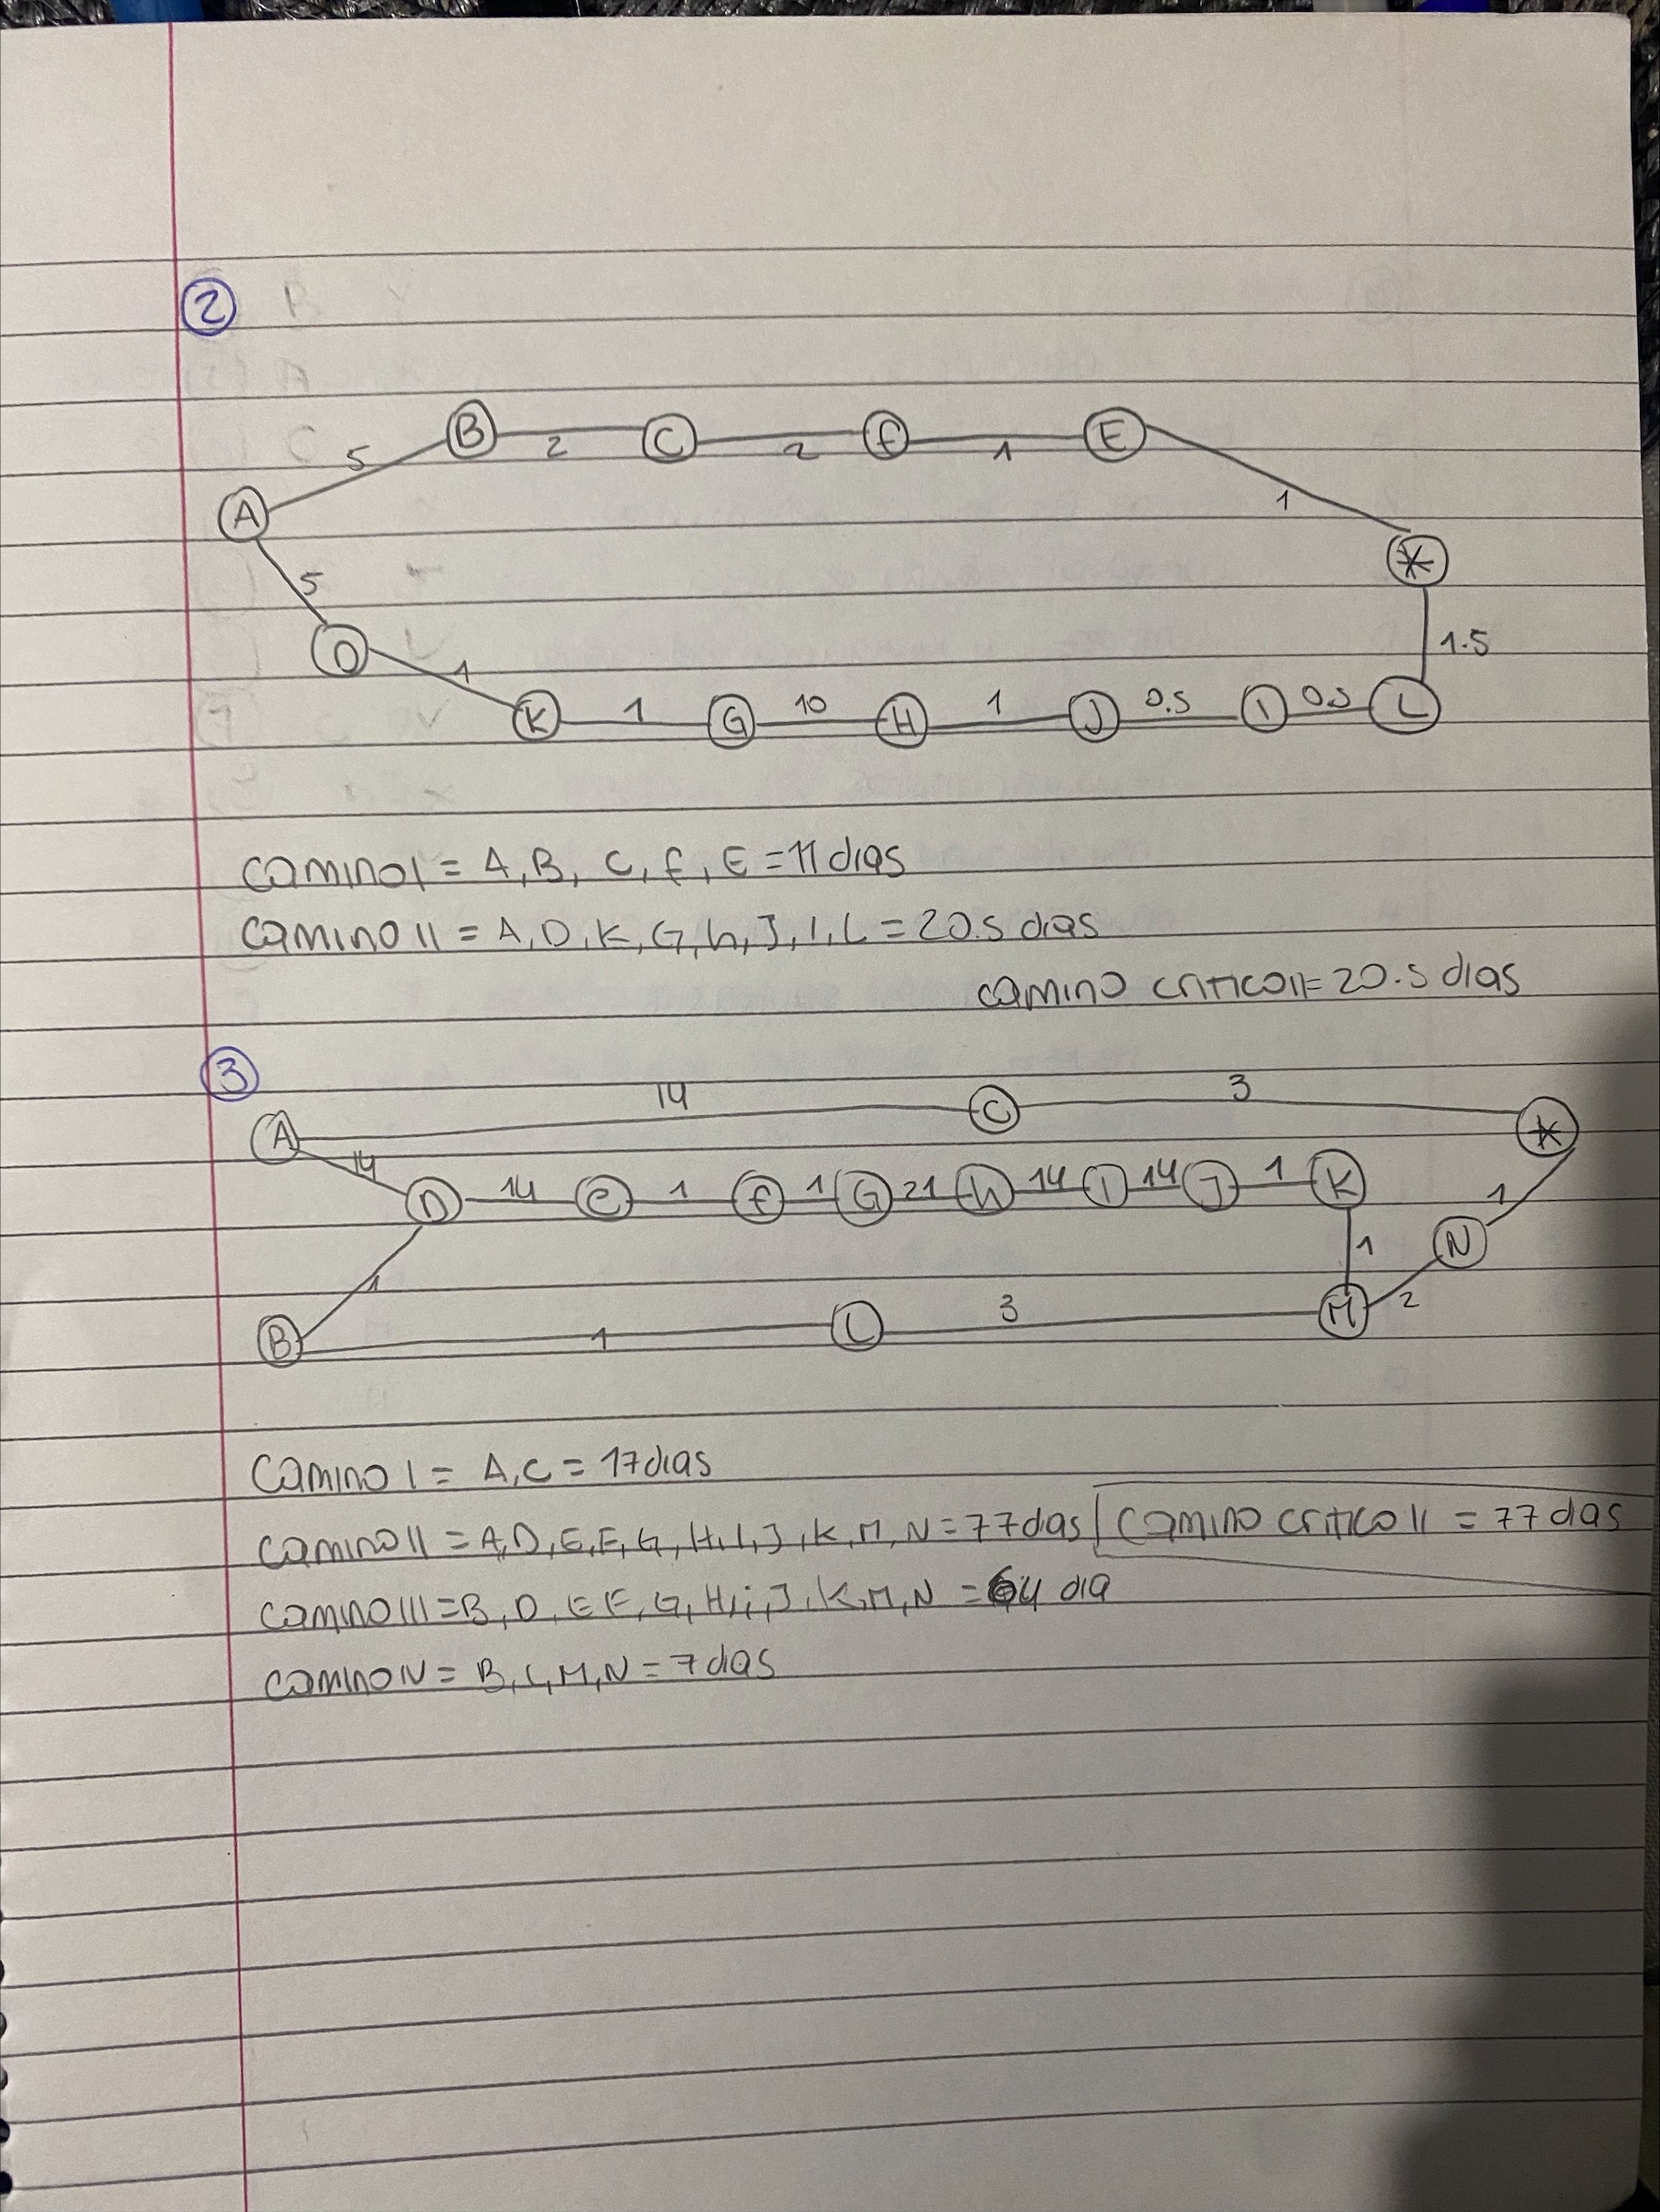 2
5 B 2 C 2 f 1 E 1
A *
5 D 1 K 1 G 10 H 1 J 0.5 I 0.5 L 1.5
camino I = A, B, C, f, E = 11 dias
camino II = A, D, K, G, h, J, I, L = 20.5 dias
camino critico II = 20.5 dias
3
A 14 C 3 *
14 D 14 e 1 f 1 G 21 h 14 I 14 J 1 K 1 N
1 1 M 2
B 1 L 3
Camino I = A, C = 17 dias
camino II = A, D, E, F, G, H, I, J, K, M, N = 77 das Camino critico II = 77 das
camino III = B, D, E F, G, H, i, J, K, M, N = 64 dia
camino IV = B, L, M, N = 7 dias